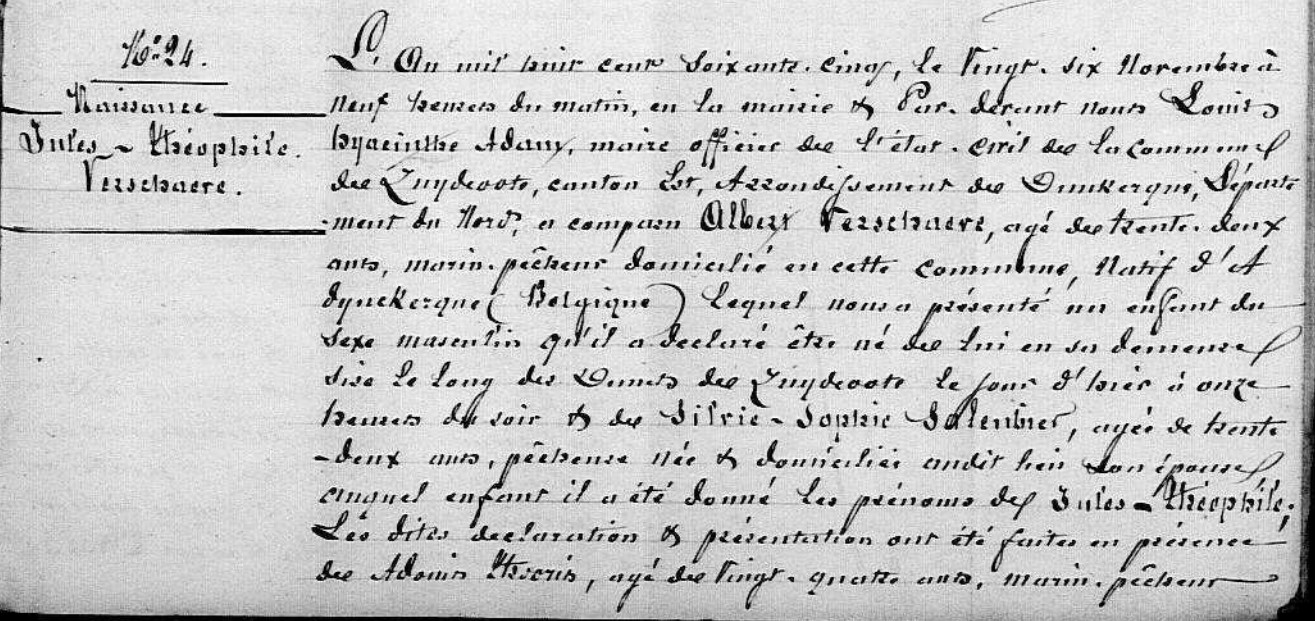 N.° 24.
Naissance
Jules - théophile.
Verschaere.
L'An mil huit cent soixante-cinq, le vingt-six Novembre à
neuf heures du matin, en la mairie & Par-devant nous Louis
hyacinthe Adam, maire officier de l'état-civil de la commune
de Zuydcoote, canton Est, Arrondissement de Dunkerque, Départe
-ment du Nord, a comparu Albert Verschaere, agé de trente-deux
ans, marin-pêcheur domicilié en cette commune, Natif d'A
dynckerque (Belgique) lequel nous a présenté un enfant du
sexe masculin qu'il a declaré être né de lui en sa demeure
sise le long des Dunes de Zuydcoote le jour d'hier à onze
heures du soir & de Silvie-Sophie Salembier, agée de trente
-deux ans, pêcheuse née & domiciliée audit lieu son épouse
auquel enfant il a été donné les prénoms de Jules-théophile;
Les dites declaration & présentation ont été faites en présence
de Adonis, agé de vingt-quatre ans, marin-pêcheur